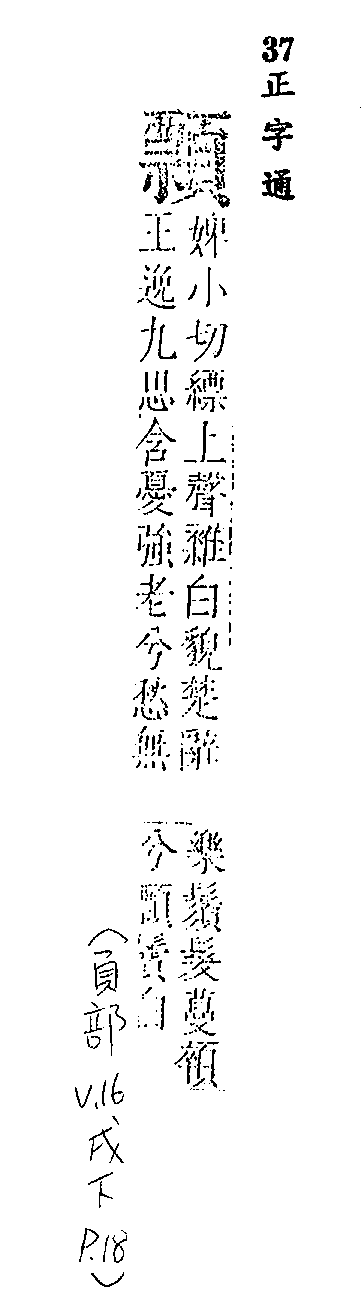 37正字通
顠
婢小切縹上聲雜白貌楚辭
王逸九思含憂強老兮愁無
樂鬚髮蔓顇
兮顠鬢白
(員部 V.16 戌下 P.18)